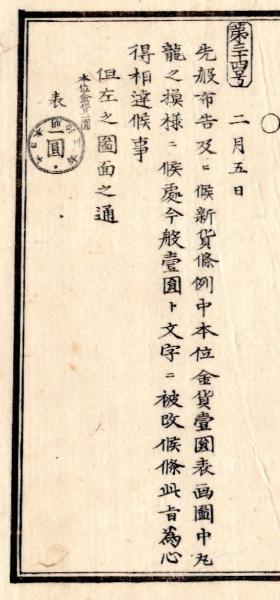 第三十四号
二月五日
先般布告及ニ候新貨條例中本位金貨壹圓表画圖中丸
龍之模様ニ候處今般壹圓ト文字ニ被改候條此旨為心
得相達候事
但左之圖面之通
本位金貨一圓
表
一圓